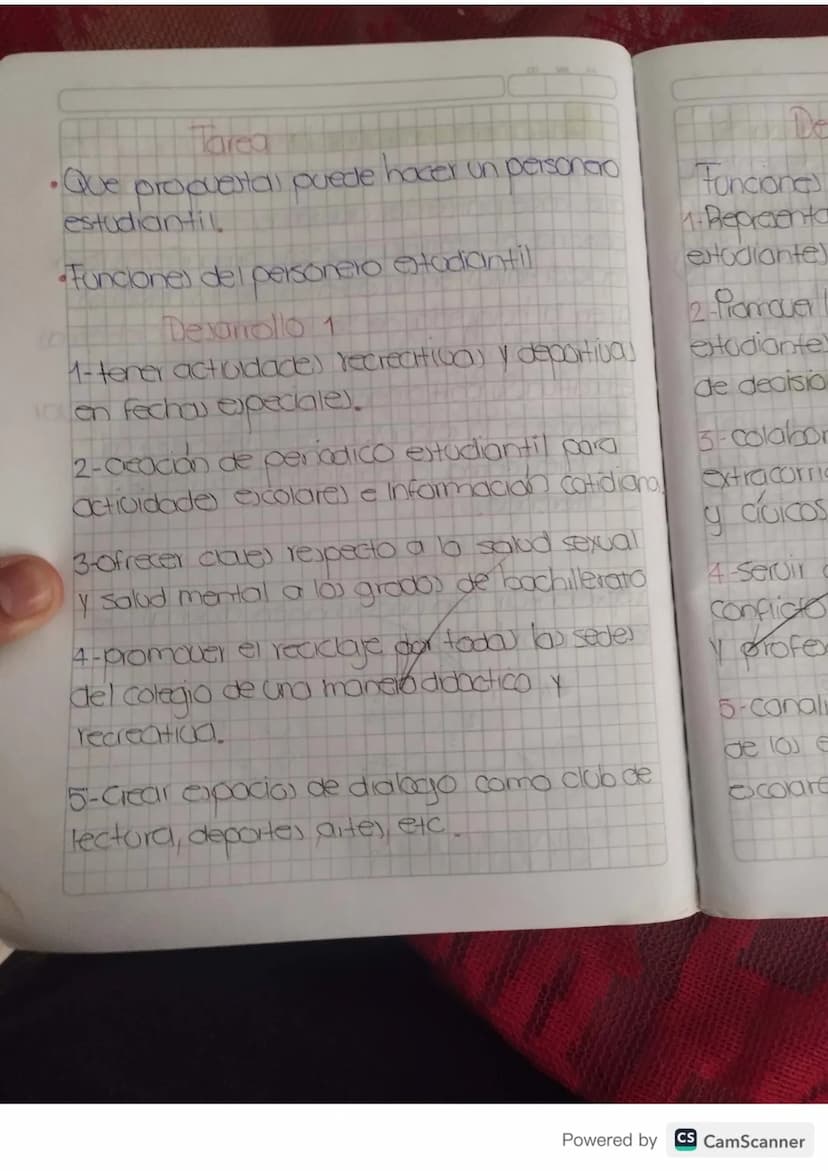 Tarea
• Que propuestas puede hacer un personero
estudiantil.
• Funciones del personero estudiantil
Desarrollo 1
1-tener actividades recreativas y deportivas
en fechas especiales.
2-creación de periodico estudiantil para
actividades escolares e información cotidiana
3-ofrecer clases respecto a la salud sexual
y salud mental a los grados de bachillerato
4-promover el reciclaje por todas las sedes
del colegio de una manera didactico y
recreativa.
5-Crear espacios de dialogo como club de
lectura, deportes, artes, etc.
De
Funciones
1-Representa
estudiantes
2-Promover l
estudiante
de decisio
3-colabor
extracurric
y cívicos
4-servir
conflicto
y profes
5-canali
de los e
escolare
Powered by CS CamScanner